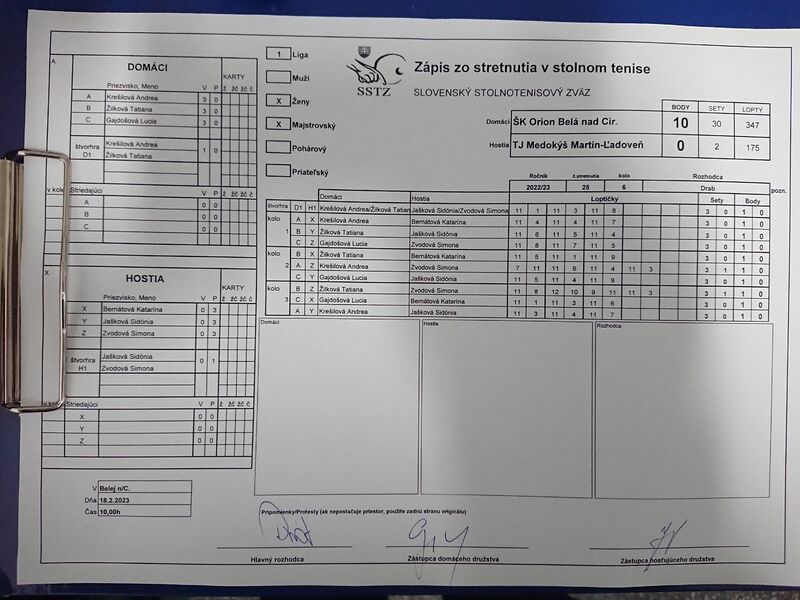 1 Liga
Muži
X Ženy
X Majstrovský
Pohárový
Priateľský
SSTZ
Zápis zo stretnutia v stolnom tenise
SLOVENSKÝ STOLNOTENISOVÝ ZVÄZ
BODY SETY LOPTY
Domáci ŠK Orion Belá nad Cir. 10 30 347
Hostia TJ Medokýš Martin-Ľadoveň 0 2 175
Ročník č.stretnutia kolo Rozhodca
2022/23 25 6 Drab
pozn.
A
DOMÁCI
KARTY
Priezvisko, Meno V P ž žč žč č
A Krešilová Andrea 3 0
B Žilková Tatiana 3 0
C Gajdošová Lucia 3 0
štvorhra D1
Krešilová Andrea
Žilková Tatiana
1 0
v kole Striedajúci V P ž žč žč č
A 0 0
B 0 0
C 0 0
X
HOSTIA
KARTY
Priezvisko, Meno V P ž žč žč č
X Bernátová Katarína 0 3
Y Jašková Sidónia 0 3
Z Zvodová Simona 0 3
štvorhra H1
Jašková Sidónia
Zvodová Simona
0 1
v kole Striedajúci V P ž žč žč č
X 0 0
Y 0 0
Z 0 0
Domáci Hostia Loptičky Sety Body
štvorhra D1 H1 Krešilová Andrea/Žilková Tatian Jašková Sidónia/Zvodová Simona 11 1 11 3 11 6 3 0 1 0
kolo 1
A X Krešilová Andrea Bernátová Katarína 11 4 11 4 11 7 3 0 1 0
B Y Žilková Tatiana Jašková Sidónia 11 6 11 5 11 4 3 0 1 0
C Z Gajdošová Lucia Zvodová Simona 11 8 11 7 11 5 3 0 1 0
kolo 2
B X Žilková Tatiana Bernátová Katarína 11 5 11 1 11 9 3 0 1 0
A Z Krešilová Andrea Zvodová Simona 7 11 11 6 11 4 11 3 3 1 1 0
C Y Gajdošová Lucia Jašková Sidónia 11 5 11 4 11 9 3 0 1 0
kolo 3
B Z Žilková Tatiana Zvodová Simona 11 8 12 10 9 11 11 3 3 1 1 0
C X Gajdošová Lucia Bernátová Katarína 11 1 11 3 11 6 3 0 1 0
A Y Krešilová Andrea Jašková Sidónia 11 3 11 4 11 7 3 0 1 0
Domáci Hostia Rozhodca
V Belej n/C.
Dňa 18.2.2023
Čas 10,00h
Pripomienky/Protesty (ak nepostačuje priestor, použite zadnú stranu originálu)
Hlavný rozhodca
Zástupca domáceho družstva
Zástupca hosťujúceho družstva